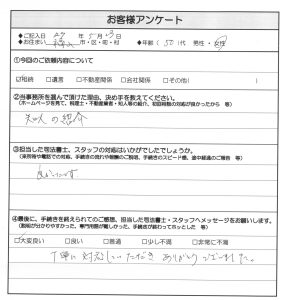 お客様アンケート
◆ご記入日 年 5月 日
◆お住まい 市・区・町・村 ◆年齢 ( 50 )代 男性・女性
①今回のご依頼内容について
☑相続 □遺言 □不動産関係 □会社関係 □その他( )
②当事務所を選んで頂けた理由、決め手を教えてください。
(ホームページを見て、税理士・不動産業者・知人等の紹介、初回相談の対応が良かったから 等)
知人の紹介
③担当した司法書士、スタッフの対応はいかがでしたでしょうか。
(来所時や電話での対応、手続きの流れや報酬のご説明、手続きのスピード感、途中経過のご報告 等)
良かったです
④最後に、手続きを終えられてのご感想、担当した司法書士・スタッフへメッセージをお願いします。
(説明が分かりやすかった、専門用語が難しかった、手続きが終わってホッとした 等)
□大変良い □良い □普通 □少し不満 □非常に不満
丁寧に対応していただき ありがとうございました。